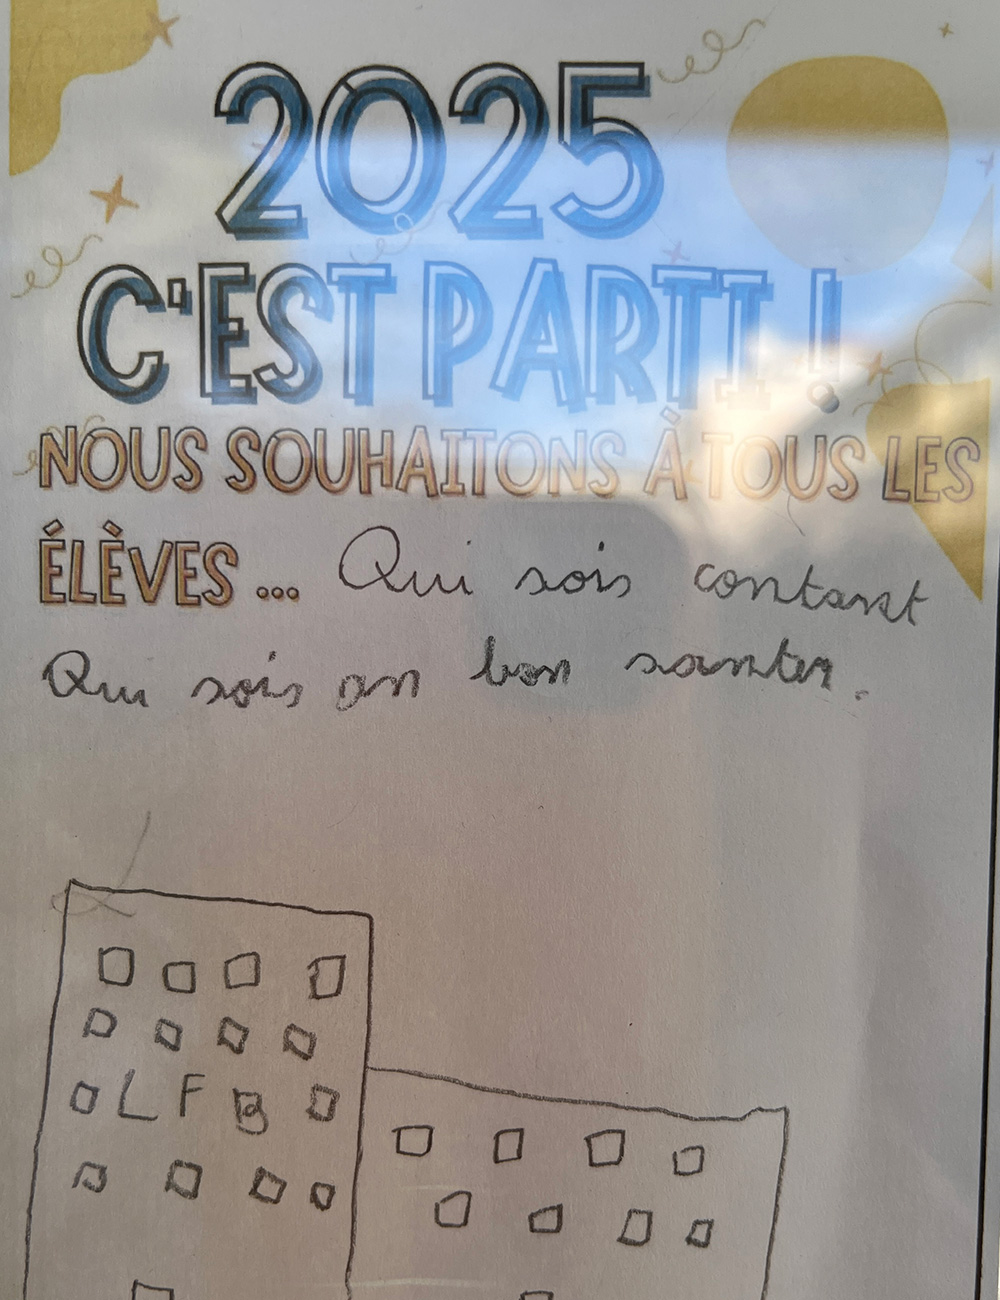 2025
C'EST PARTI !
NOUS SOUHAITONS À TOUS LES
ÉLÈVES ... Qui sois contant
Qui sois an bon santer.
LFB